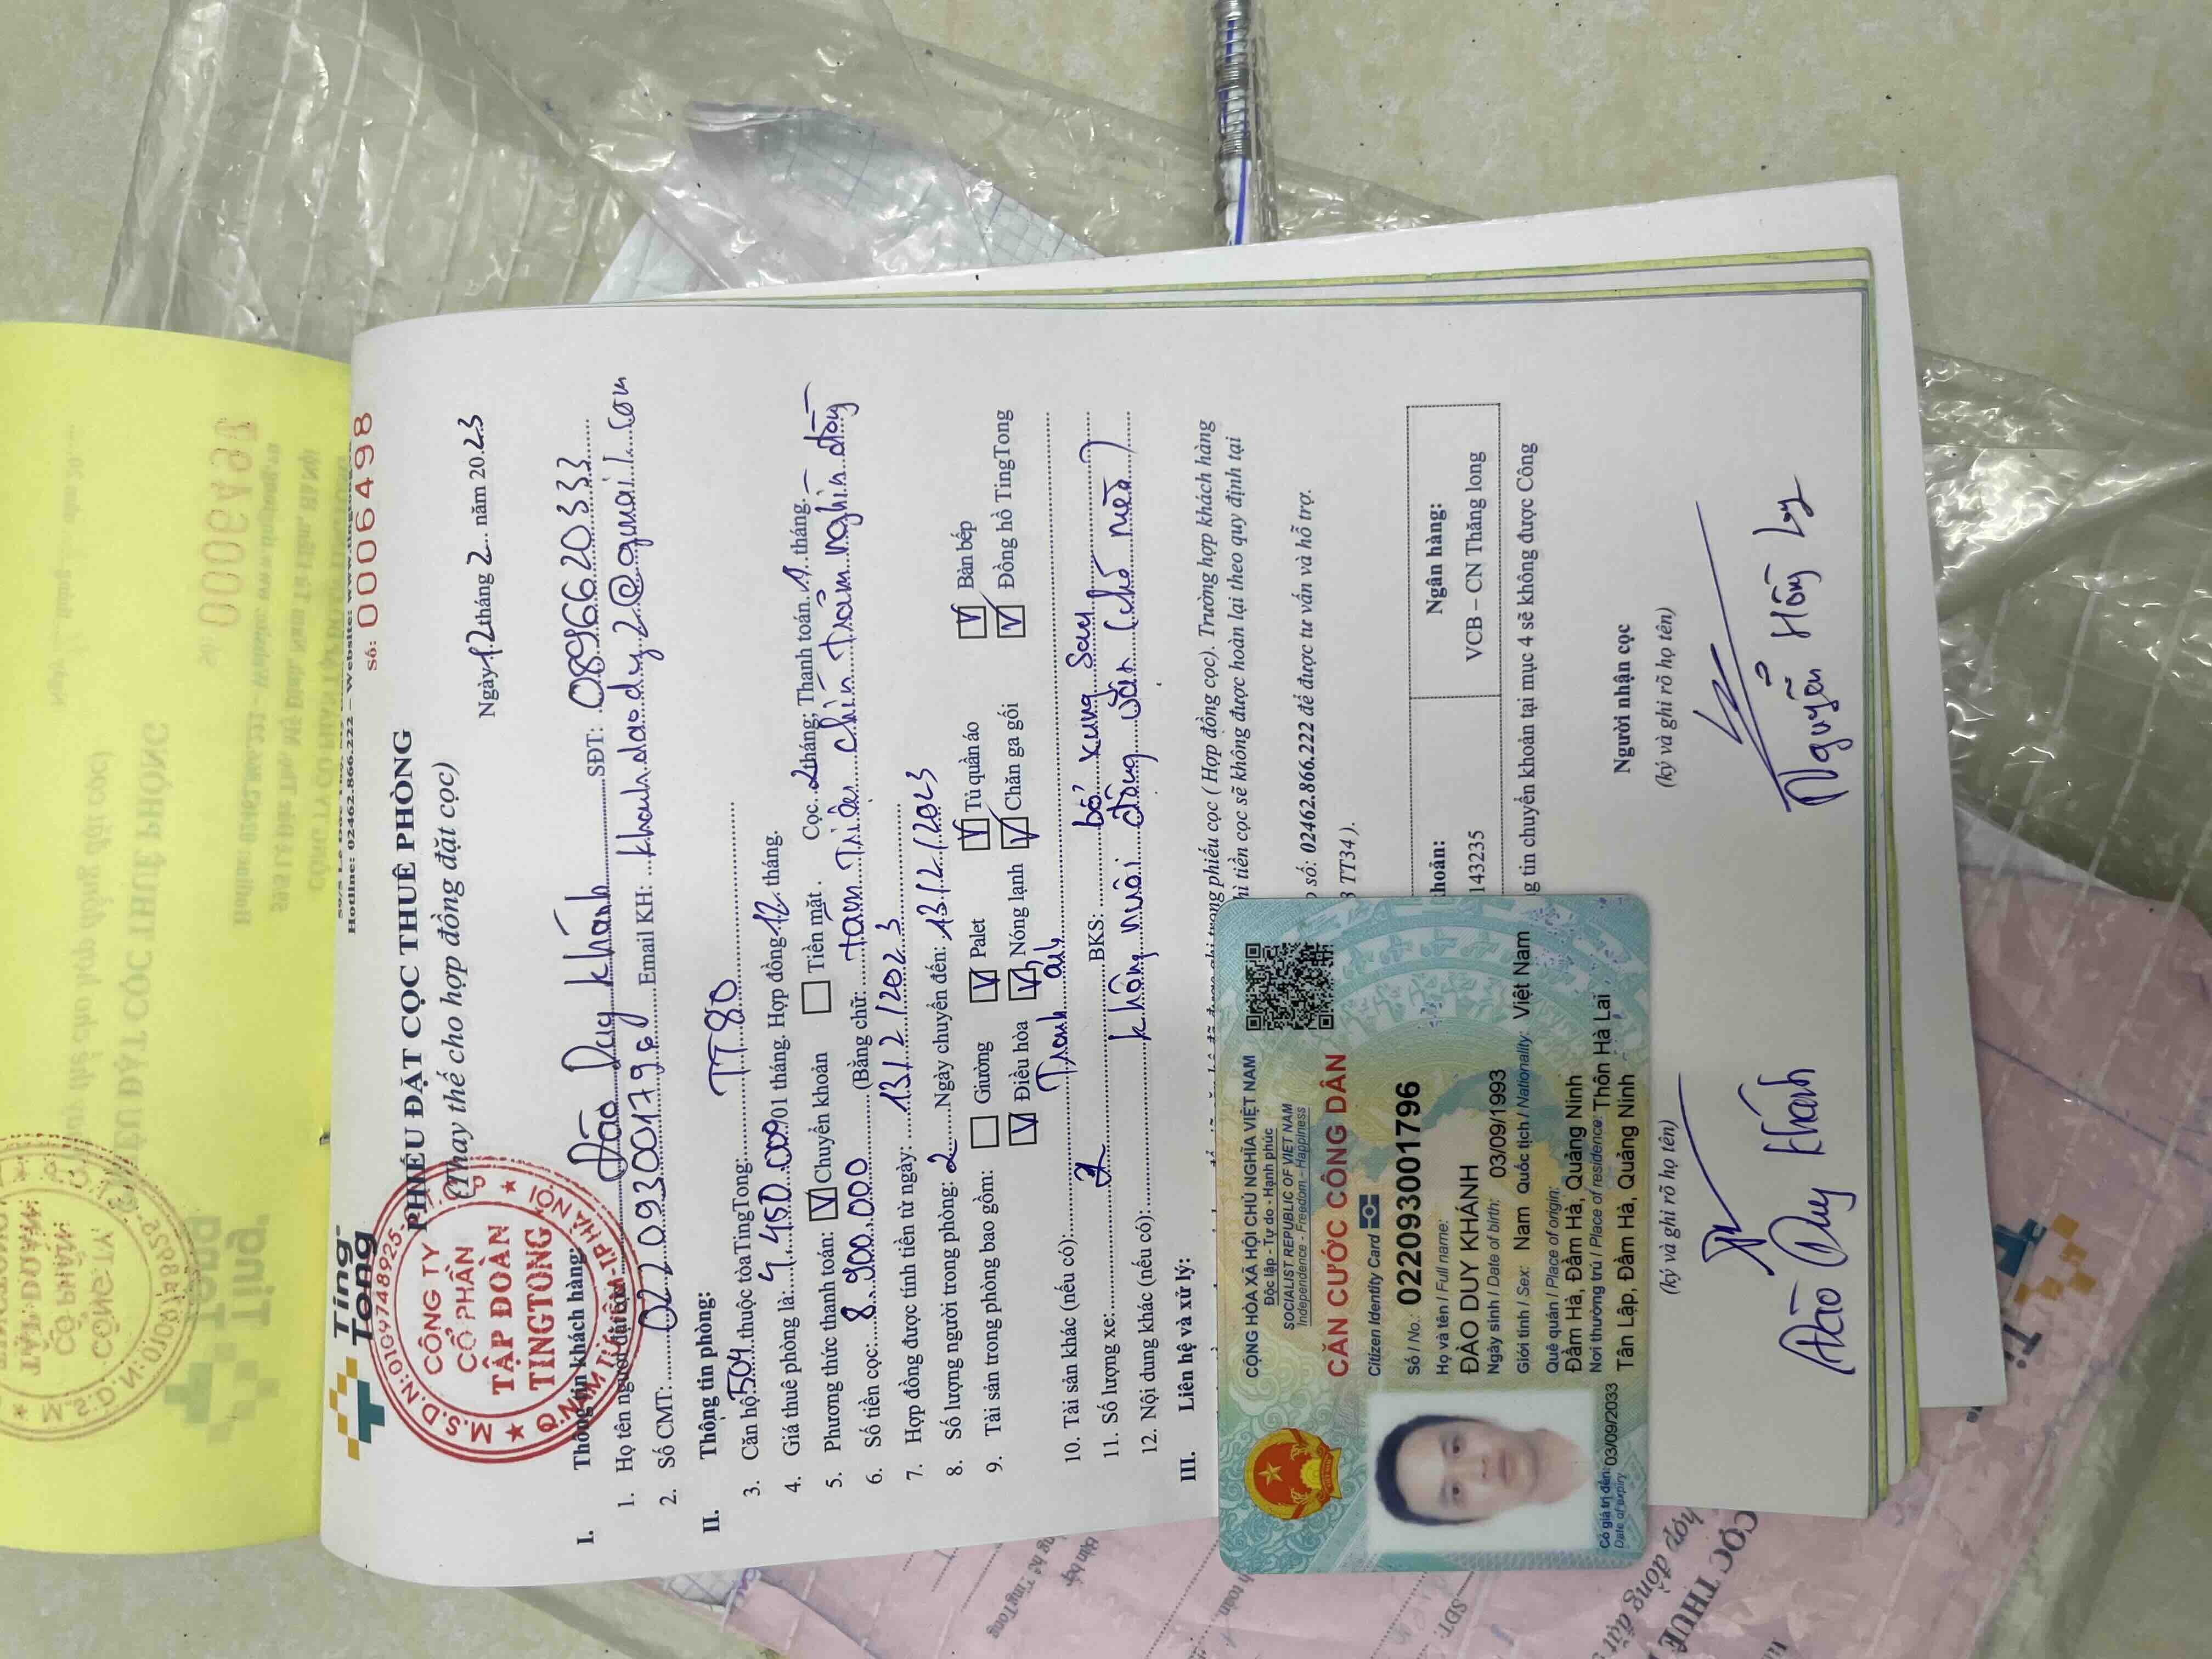 Ting
Tong
M.S.D.N:0109748925
CÔNG TY
CỔ PHẦN
TẬP ĐOÀN
TINGTONG
Hotline: 02462.866.222 – Website:
Số: 0006498
PHIẾU ĐẶT CỌC THUÊ PHÒNG
(Thay thế cho hợp đồng đặt cọc)
Ngày 12 tháng 2 năm 2023
I. Thông tin khách hàng:
1. Họ tên người đặt cọc: Đào Duy Khánh SĐT: 0896620333
2. Số CMT: 022093001796 Email KH: khanh.daoduy2@gmail.com
II. Thông tin phòng:
3. Căn hộ 504 thuộc tòa TingTong: TT80
4. Giá thuê phòng là: 4.450.000/01 tháng. Hợp đồng 12 tháng. Cọc 2 tháng; Thanh toán 1 tháng.
5. Phương thức thanh toán: V Chuyển khoản Tiền mặt.
6. Số tiền cọc: 8.900.000 (Bằng chữ: tám triệu chín trăm nghìn đồng
7. Hợp đồng được tính tiền từ ngày: 13/2/2023
8. Số lượng người trong phòng: 2 Ngày chuyển đến: 13/2/2023
9. Tài sản trong phòng bao gồm: Giường V Palet V Tủ quần áo V Bàn bếp
V Điều hòa V Nóng lạnh V Chăn ga gối V Đồng hồ TingTong
10. Tài sản khác (nếu có): Tranh ảnh
11. Số lượng xe: 2 BKS: bổ xung sau
12. Nội dung khác (nếu có): không nuôi động vật (chó mèo)
III. Liên hệ và xử lý:
trong phiếu cọc ( Hợp đồng cọc). Trường hợp khách hàng
hì tiền cọc sẽ không được hoàn lại theo quy định tại
số: 02462.866.222 để được tư vấn và hỗ trợ.
TT34).
khoản: Ngân hàng:
143235 VCB – CN Thăng long
g tin chuyển khoản tại mục 4 sẽ không được Công
Người nhận cọc
(ký và ghi rõ họ tên) (ký và ghi rõ họ tên)
Đào Duy Khánh Nguyễn Hồng Ly
CỘNG HÒA XÃ HỘI CHỦ NGHĨA VIỆT NAM
Độc lập - Tự do - Hạnh phúc
SOCIALIST REPUBLIC OF VIET NAM
Independence - Freedom - Happiness
CĂN CƯỚC CÔNG DÂN
Citizen Identity Card
Số / No.: 022093001796
Họ và tên / Full name:
ĐÀO DUY KHÁNH
Ngày sinh / Date of birth: 03/09/1993
Giới tính / Sex: Nam Quốc tịch / Nationality: Việt Nam
Quê quán / Place of origin:
Đầm Hà, Đầm Hà, Quảng Ninh
Nơi thường trú / Place of residence: Thôn Hà Lai
Tân Lập, Đầm Hà, Quảng Ninh
Có giá trị đến: 03/09/2033
Date of expiry
CỌC THUÊ
hợp đồng đặt
SĐT: